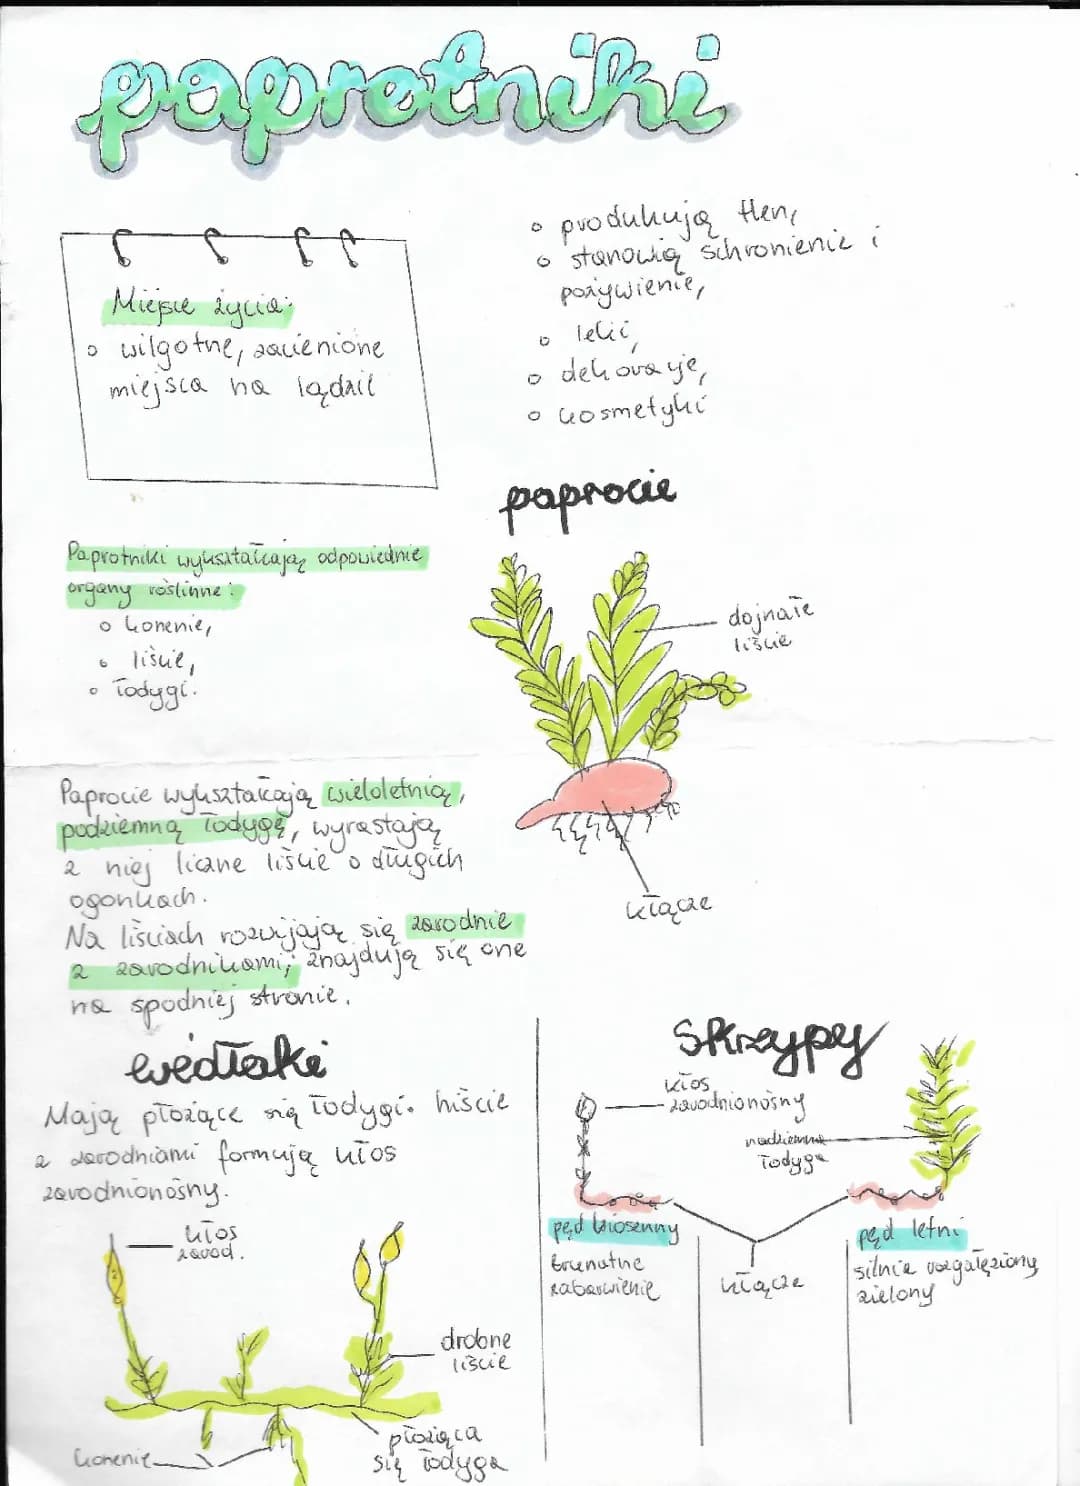 paprotniki
Miejsce życia:
o wilgotne, zacienione
miejsca na lądzie
o produkują tlen,
o stanowią schronienie i
pożywienie,
o leki,
o dekoracje,
o kosmetyki
Paprotniki wykształcają odpowiednie
organy roślinne:
o korzenie,
o liście,
o łodygi.
paprocie
dojrzałe
liście
kłącze
Paprocie wykształcają wieloletnią,
podziemną łodygę, wyrastają
z niej liczne liście o długich
ogonkach.
Na liściach rozwijają się zarodnie
z zarodnikami, znajdują się one
na spodniej stronie.
widłaki
Mają płożące się łodygi. Liście
z zarodniami formują kłos
zarodnionośny.
kłos
zarod.
drobne
liście
płożąca
się łodyga
korzenie
skrzypy
kłos
zarodnionośny
nadziemna
łodyga
pęd wiosenny
brunatne
zabarwienie
kłącze
pęd letni
silnie rozgałęziony
zielony